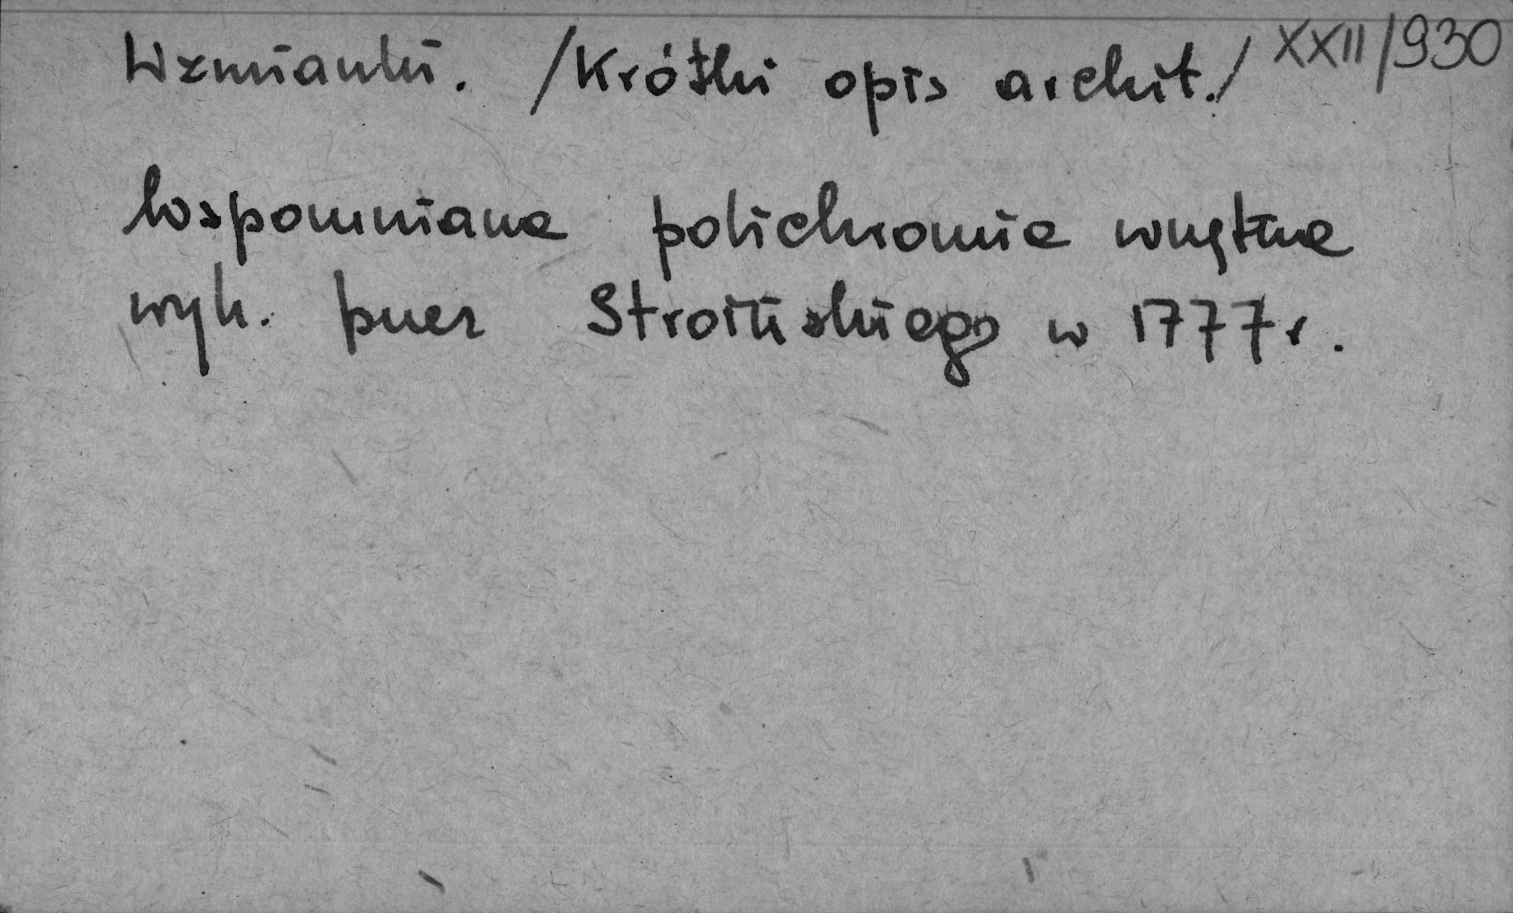 Wzmianki. /Krótki opis archit./ XXII/930
Wspomniana polichromia wnętrza
wyk. przez Stroińskiego w 1777 r.